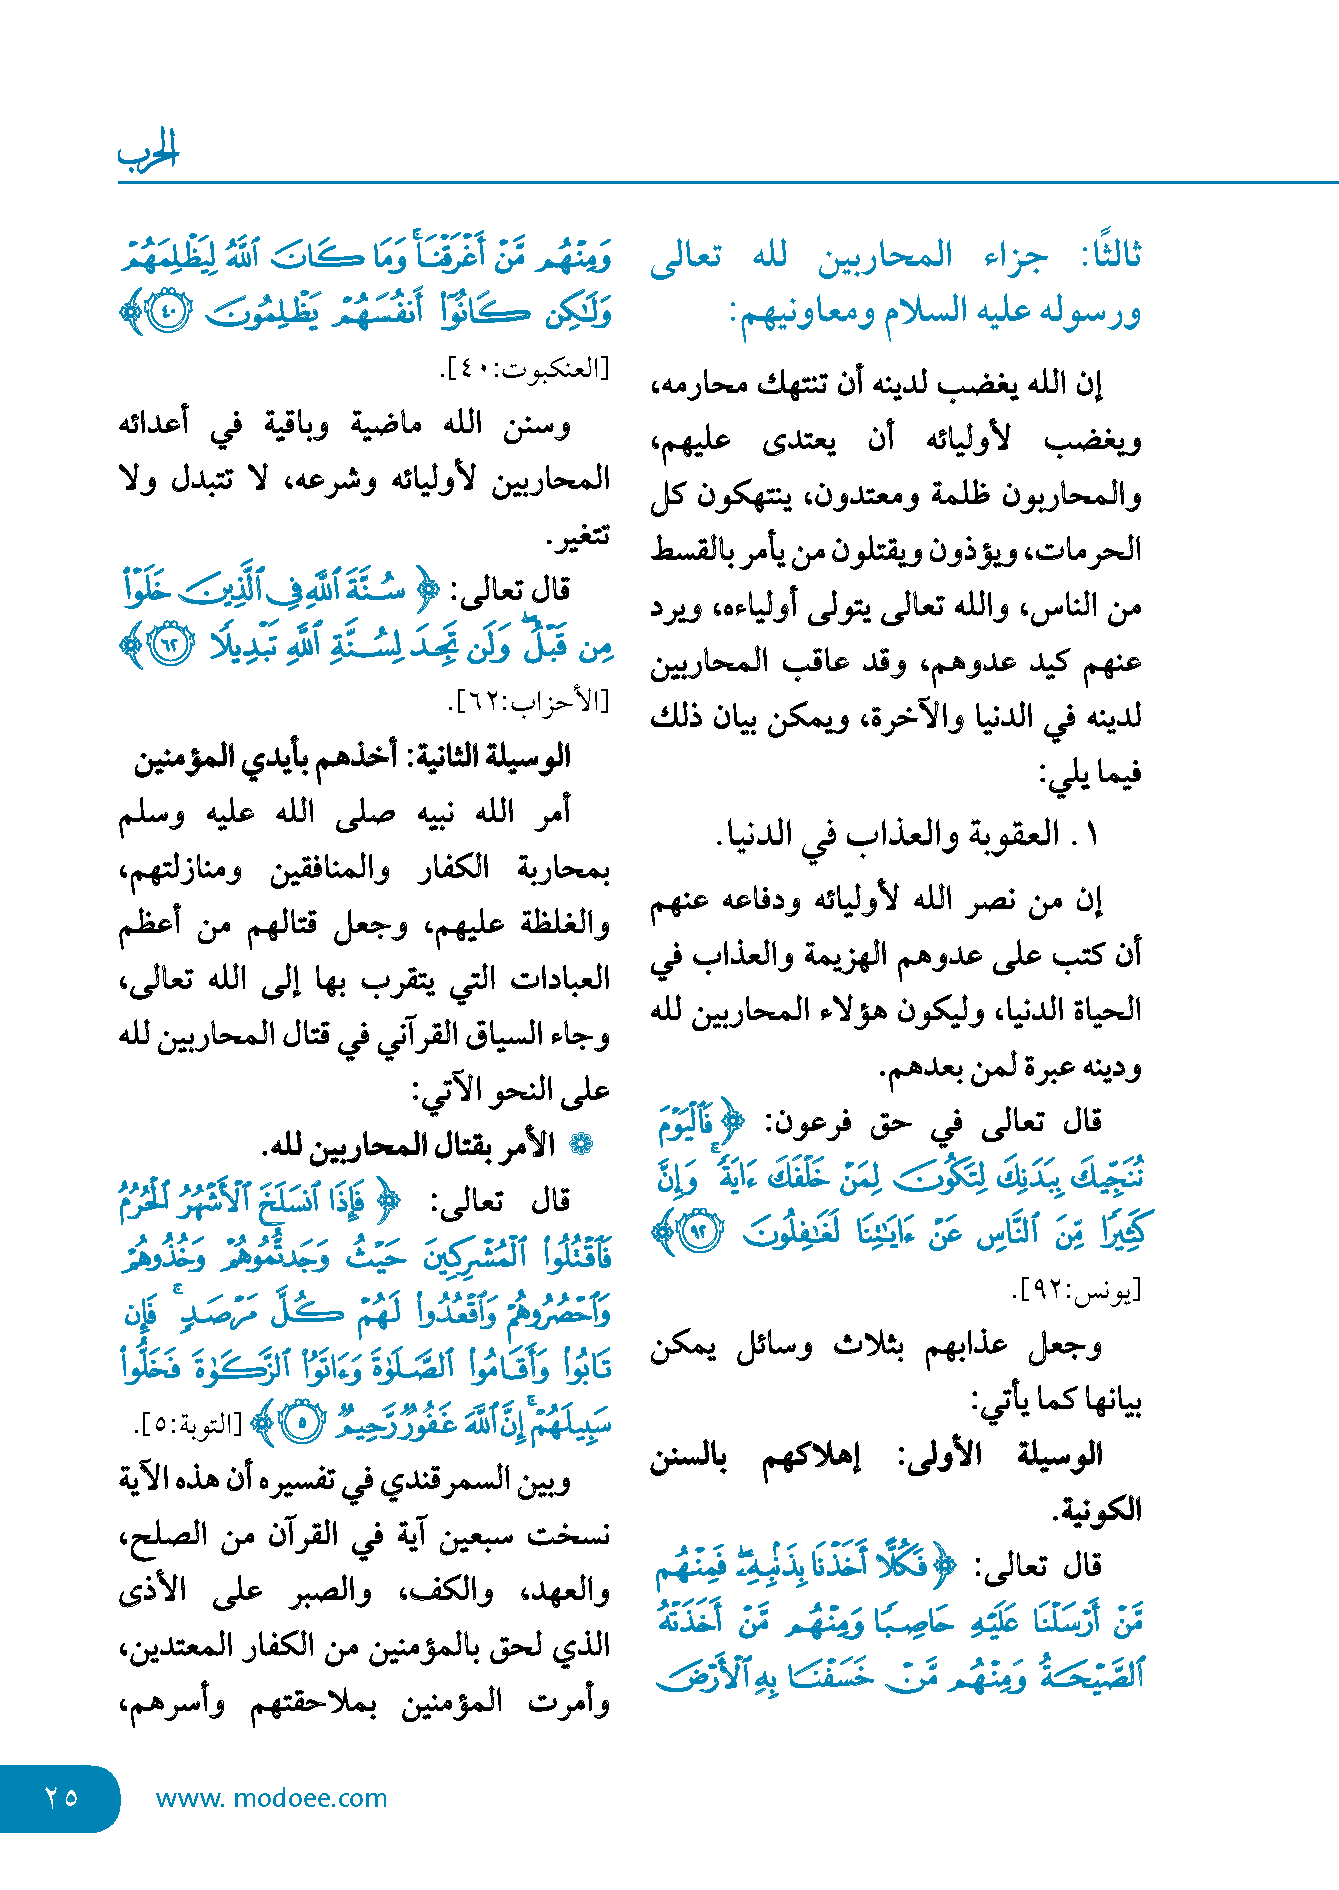 الحرب
ثالثًا: جزاء المحاربين لله تعالى
ورسوله عليه السلام ومعاونيهم:
إن الله يغضب لدينه أن تنتهك محارمه،
ويغضب لأوليائه أن يعتدى عليهم،
والمحاربون ظلمة ومعتدون، ينتهكون كل
الحرمات، ويؤذون ويقتلون من يأمر بالقسط
من الناس، والله تعالى يتولى أولياءه، ويرد
عنهم كيد عدوهم، وقد عاقب المحاربين
لدينه في الدنيا والآخرة، ويمكن بيان ذلك
فيما يلي:
١. العقوبة والعذاب في الدنيا.
إن من نصر الله لأوليائه ودفاعه عنهم
أن كتب على عدوهم الهزيمة والعذاب في
الحياة الدنيا، وليكون هؤلاء المحاربين لله
ودينه عبرة لمن بعدهم.
قال تعالى في حق فرعون: ﴿فَٱلْيَوْمَ
نُنَجِّيكَ بِبَدَنِكَ لِتَكُونَ لِمَنْ خَلْفَكَ ءَايَةً ۚ وَإِنَّ
كَثِيرًا مِّنَ ٱلنَّاسِ عَنْ ءَايَٰتِنَا لَغَٰفِلُونَ ٩٢﴾
[يونس:٩٢].
وجعل عذابهم بثلاث وسائل يمكن
بيانها كما يأتي:
الوسيلة الأولى: إهلاكهم بالسنن
الكونية.
قال تعالى: ﴿فَكُلًّا أَخَذْنَا بِذَنۢبِهِۦ ۖ فَمِنْهُم
مَّنْ أَرْسَلْنَا عَلَيْهِ حَاصِبًا وَمِنْهُم مَّنْ أَخَذَتْهُ
ٱلصَّيْحَةُ وَمِنْهُم مَّنْ خَسَفْنَا بِهِ ٱلْأَرْضَ
وَمِنْهُم مَّنْ أَغْرَقْنَا ۚ وَمَا كَانَ ٱللَّهُ لِيَظْلِمَهُمْ
وَلَٰكِن كَانُوٓا۟ أَنفُسَهُمْ يَظْلِمُونَ ٤٠﴾
[العنكبوت:٤٠].
وسنن الله ماضية وباقية في أعدائه
المحاربين لأوليائه وشرعه، لا تتبدل ولا
تتغير.
قال تعالى: ﴿سُنَّةَ ٱللَّهِ فِى ٱلَّذِينَ خَلَوْا۟
مِن قَبْلُ ۖ وَلَن تَجِدَ لِسُنَّةِ ٱللَّهِ تَبْدِيلًا ٦٢﴾
[الأحزاب:٦٢].
الوسيلة الثانية: أخذهم بأيدي المؤمنين
أمر الله نبيه صلى الله عليه وسلم
بمحاربة الكفار والمنافقين ومنازلتهم،
والغلظة عليهم، وجعل قتالهم من أعظم
العبادات التي يتقرب بها إلى الله تعالى،
وجاء السياق القرآني في قتال المحاربين لله
على النحو الآتي:
❁ الأمر بقتال المحاربين لله.
قال تعالى: ﴿فَإِذَا ٱنسَلَخَ ٱلْأَشْهُرُ ٱلْحُرُمُ
فَٱقْتُلُوا۟ ٱلْمُشْرِكِينَ حَيْثُ وَجَدتُّمُوهُمْ وَخُذُوهُمْ
وَٱحْصُرُوهُمْ وَٱقْعُدُوا۟ لَهُمْ كُلَّ مَرْصَدٍ ۚ فَإِن
تَابُوا۟ وَأَقَامُوا۟ ٱلصَّلَوٰةَ وَءَاتَوُا۟ ٱلزَّكَوٰةَ فَخَلُّوا۟
سَبِيلَهُمْ ۚ إِنَّ ٱللَّهَ غَفُورٌ رَّحِيمٌ ٥﴾ [التوبة:٥].
وبين السمرقندي في تفسيره أن هذه الآية
نسخت سبعين آية في القرآن من الصلح،
والعهد، والكف، والصبر على الأذى
الذي لحق بالمؤمنين من الكفار المعتدين،
وأمرت المؤمنين بملاحقتهم وأسرهم،
٢٥
www. modoee.com